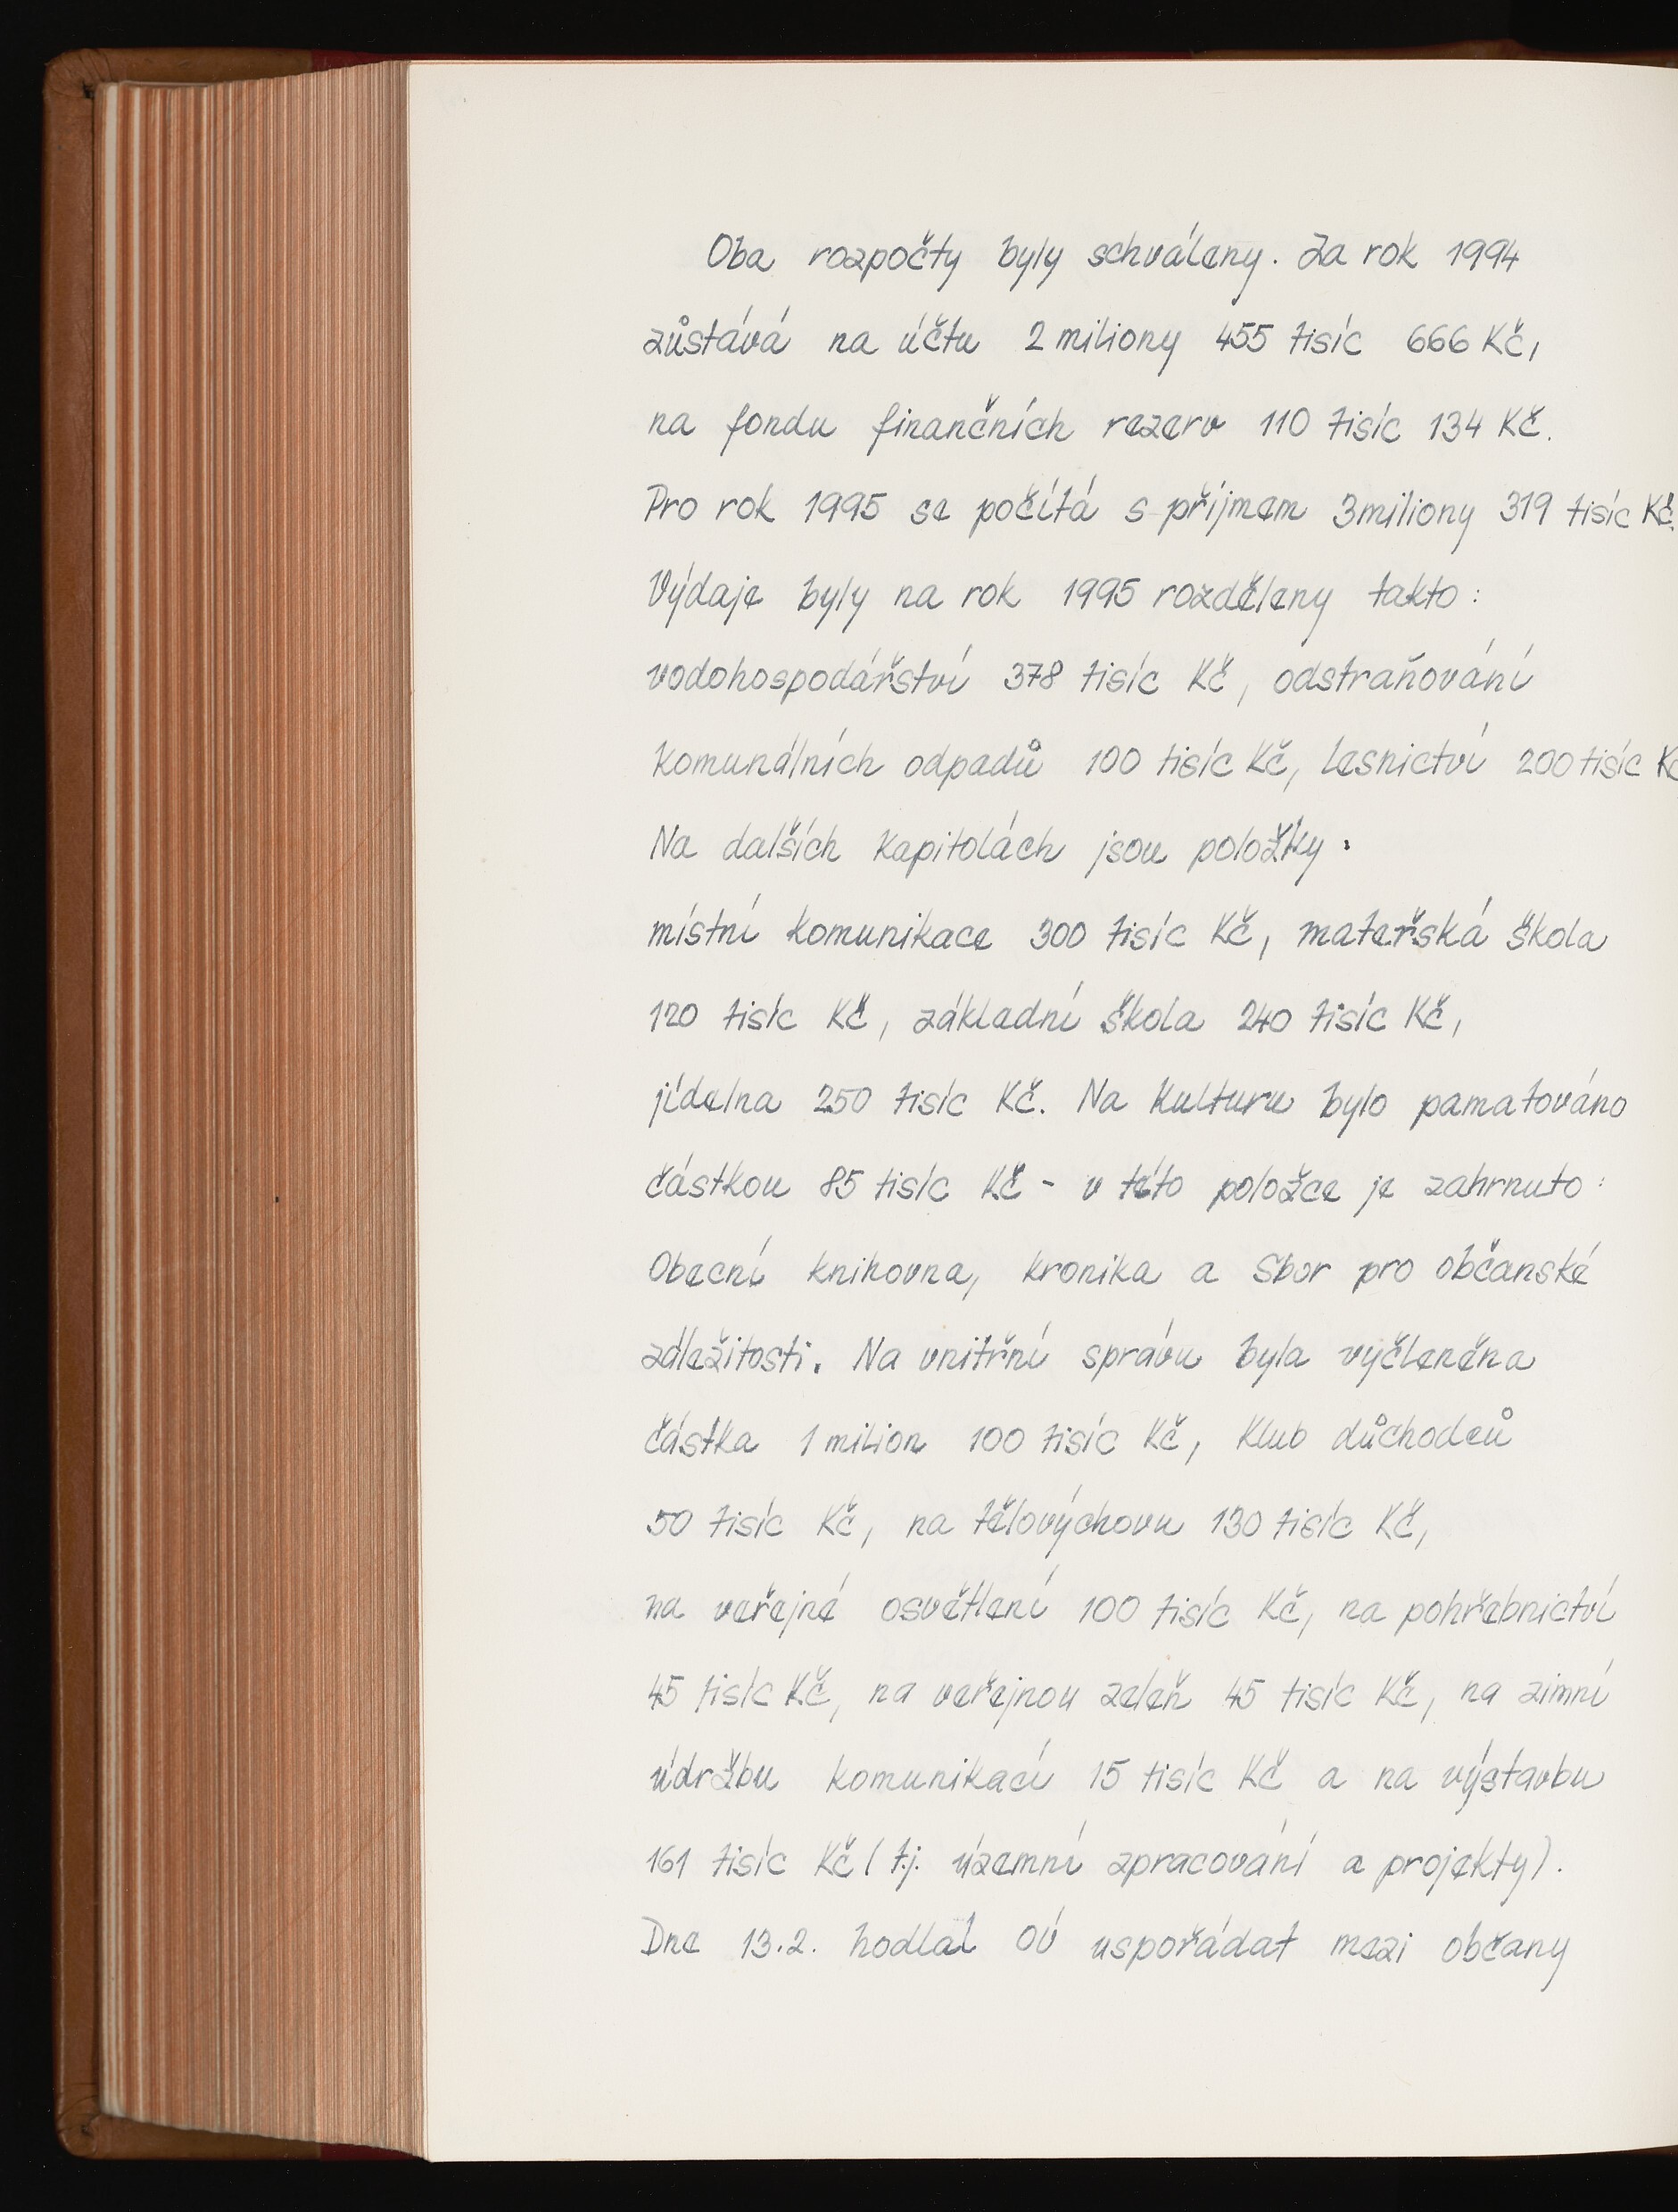 Oba rozpočty byly schváleny. Za rok 1994
zůstává na účtu 2 miliony 455 tisíc 666 Kč,
na fondu finančních rezerv 110 tisíc 134 Kč.
Pro rok 1995 se počítá s příjmem 3 miliony 319 tisíc Kč.
Výdaje byly na rok 1995 rozděleny takto:
vodohospodářství 378 tisíc Kč, odstraňování
komunálních odpadů 100 tisíc Kč, lesnictví 200 tisíc Kč
Na dalších kapitolách jsou položky:
místní komunikace 300 tisíc Kč, mateřská škola
120 tisíc Kč, základní škola 240 tisíc Kč,
jídelna 250 tisíc Kč. Na kulturu bylo pamatováno
částkou 85 tisíc Kč - v této položce je zahrnuto:
Obecní knihovna, kronika a Sbor pro občanské
záležitosti. Na vnitřní správu byla vyčleněna
částka 1 milion 100 tisíc Kč, Klub důchodců
50 tisíc Kč, na tělovýchovu 130 tisíc Kč,
na veřejné osvětlení 100 tisíc Kč, na pohřebnictví
45 tisíc Kč, na veřejnou zeleň 45 tisíc Kč, na zimní
údržbu komunikací 15 tisíc Kč a na výstavbu
161 tisíc Kč (t.j. územní zpracování a projekty).
Dne 13.2. hodlal OÚ uspořádat mezi občany